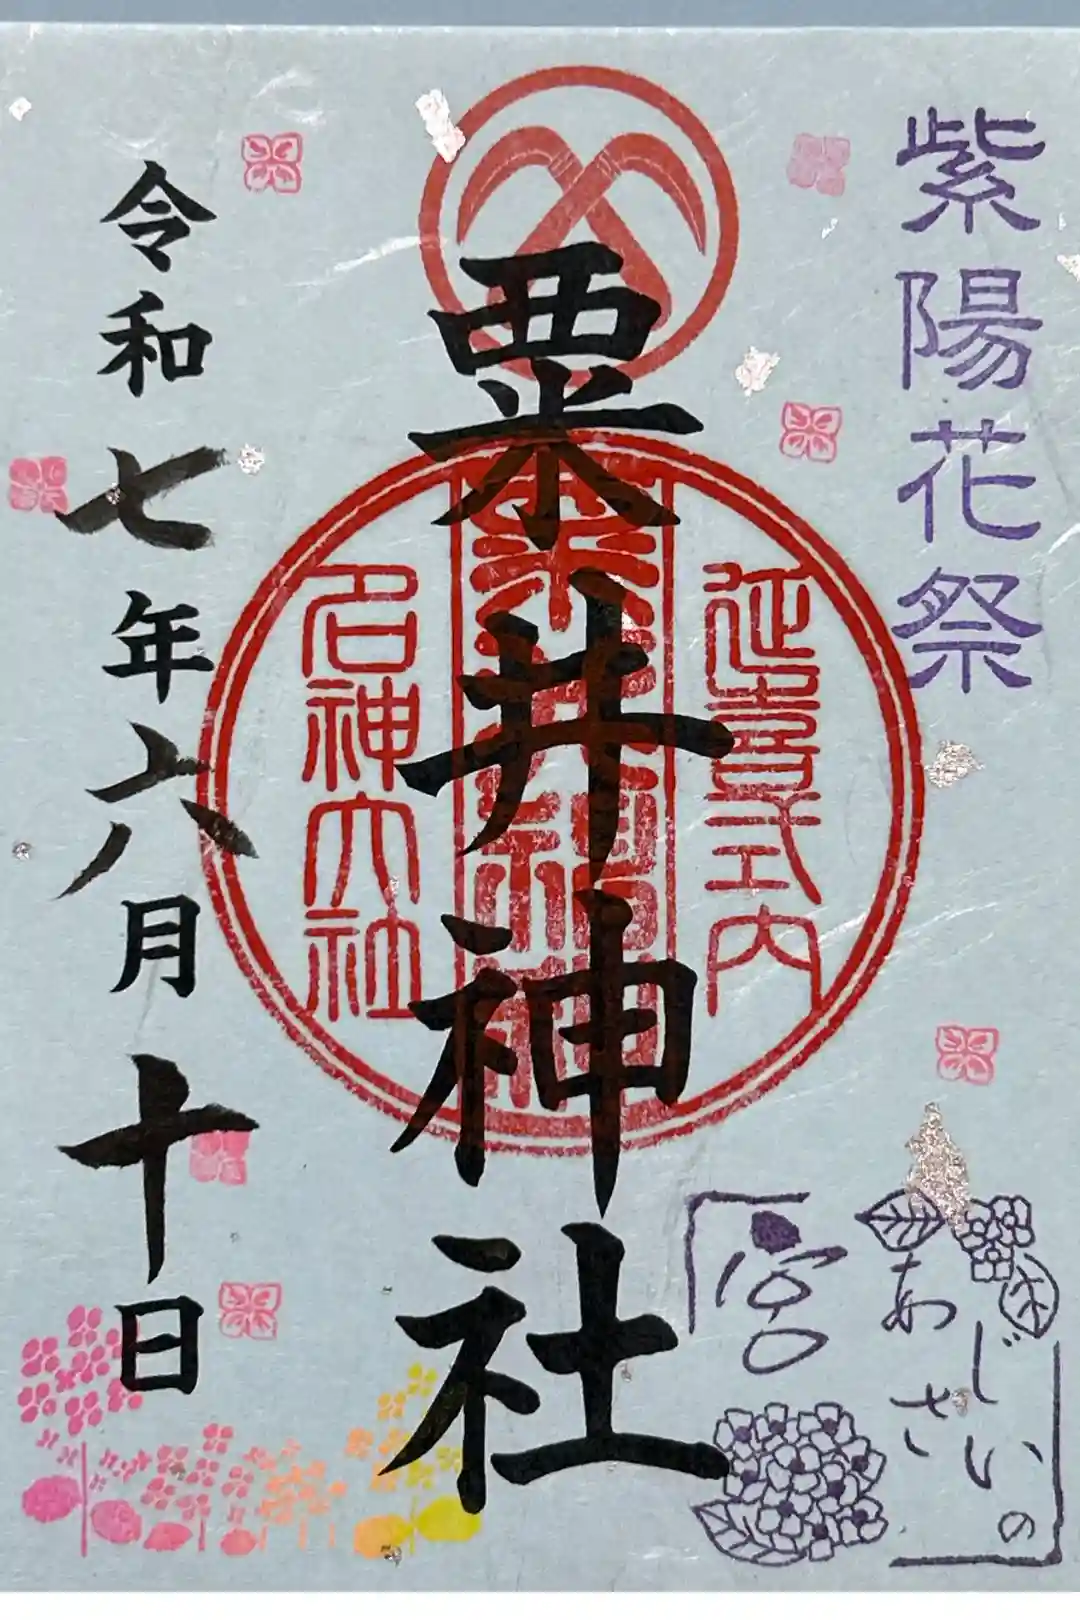 紫陽花祭
あじさいの
宮
粟井神社
延喜式内
粟井神社
名神大社
令和七年六月十日